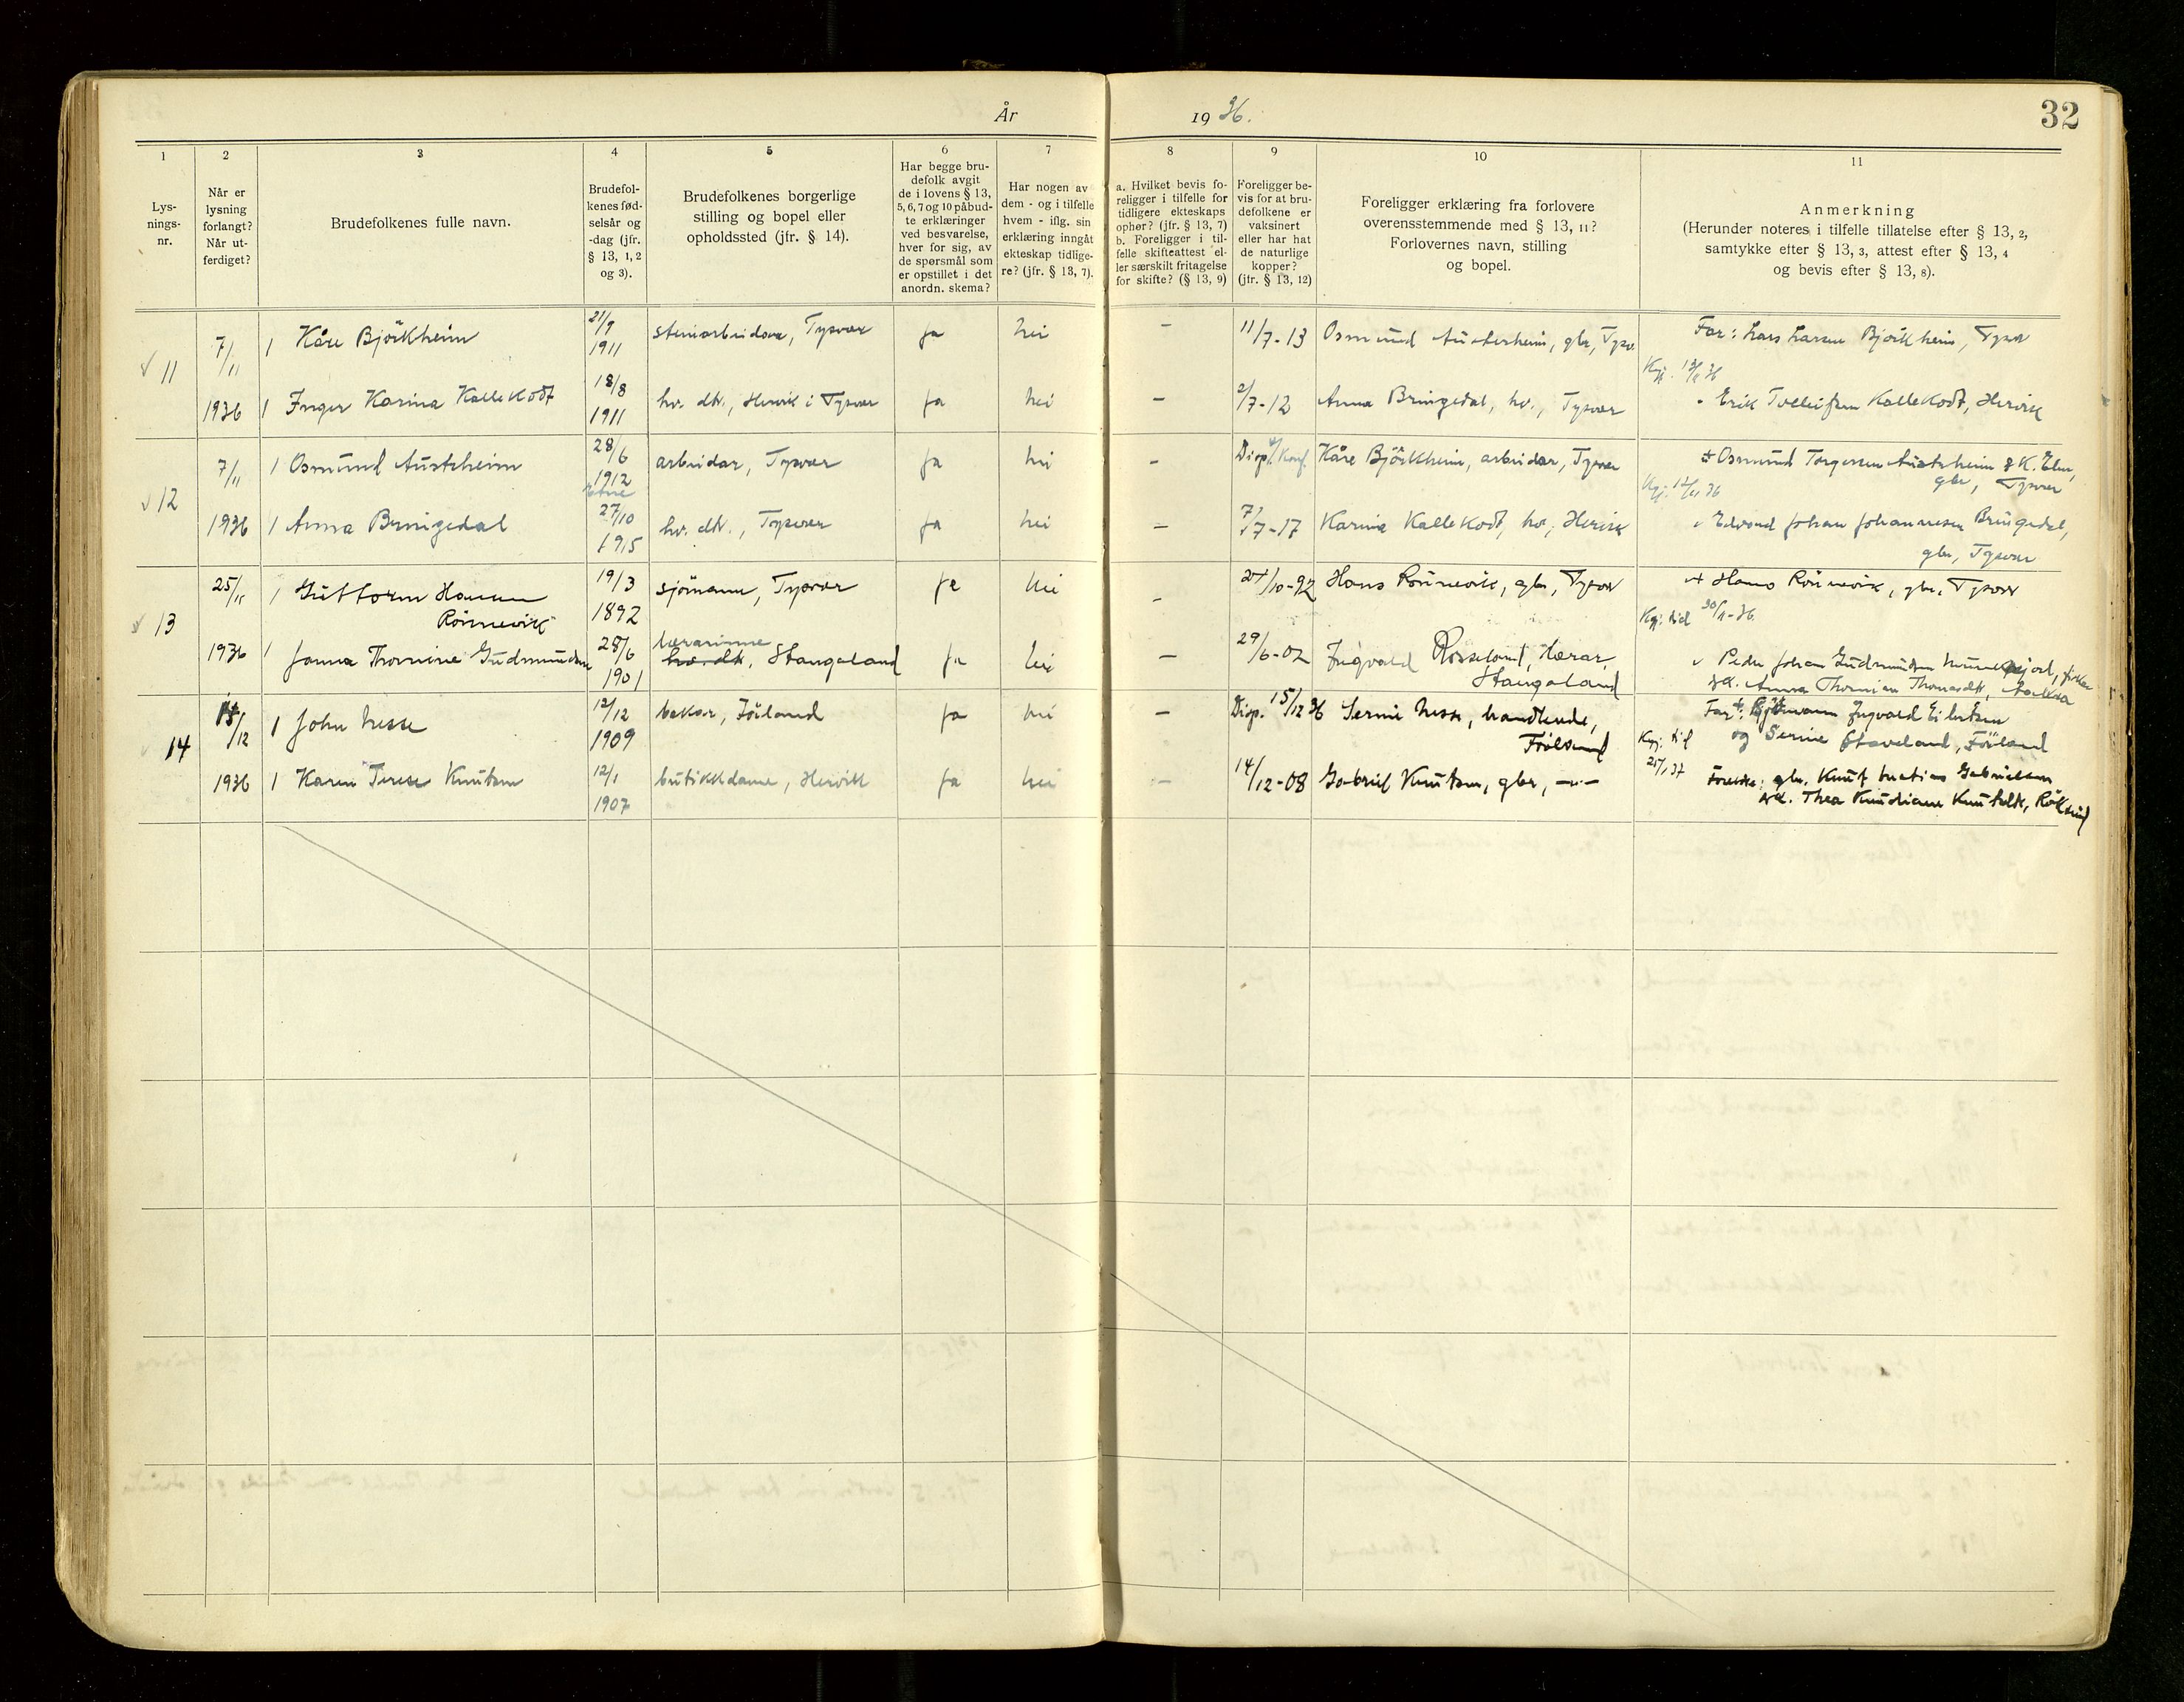 År 1936.
32
1
Lys-
nings-
nr.
2
Når er
lysning
forlangt?
Når ut-
ferdiget?
3
Brudefolkenes fulle navn.
4
Brudefol-
kenes fød-
selsår og
-dag (jfr.
§ 13, 1, 2
og 3).
5
Brudefolkenes borgerlige
stilling og bopel eller
opholdssted (jfr. § 14).
6
Har begge bru-
defolk avgit
de i lovens § 13,
5, 6, 7 og 10 påbud-
te erklæringer
ved besvarelse,
hver for sig, av
de spørsmål som
er opstillet i det
anordn. skema?
7
Har nogen av
dem - og i tilfelle
hvem - iflg. sin
erklæring inngåt
ekteskap tidlige-
re? (jfr. § 13, 7).
8
a. Hvilket bevis fo-
religger i tilfelle for
tidligere ekteskaps
ophør? (jfr. § 13, 7)
b. Foreligger i til-
felle skifteattest el-
ler særskilt fritagelse
for skifte? (§ 13, 9)
9
Foreligger be-
vis for at bru-
defolkene er
vaksinert
eller har hat
de naturlige
kopper?
(jfr. § 13, 12)
10
Foreligger erklæring fra forlovere
overensstemmende med § 13, 11?
Forlovernes navn, stilling
og bopel.
11
Anmerkning
(Herunder noteres i tilfelle tillatelse efter § 13, 2,
samtykke efter § 13, 3, attest efter § 13, 4
og bevis efter § 13, 8).
11
7/11
1 Kåre Björkheim
21/9
1911
steinarbeidar, Tysvær
ja
nei
–
11/7-13
Osmund Austerheim, gbr, Tysv
Far: Lars Larsen Björkheim, Tysv
1936
1 Inger Karina Kallekodt
18/8
1911
hv. dtr., Hervik i Tysvær
ja
nei
–
2/7-12
Anna Bringedal, hv., Tysvær
Erik Kallekodt, Hervik
12
7/11
1 Osmund Austrheim
28/6
1912
Etne
arbeidar, Tysvær
ja
nei
–
Disp. Konf.
Kåre Björkheim, arbeidar, Tysvær
Osmund Torgersen Austrheim & K. Elen,
gbr, Tysvær
1936
1 Anna Bringedal
27/10
1915
hv. dtr., Tysvær
ja
nei
–
7/7-17
Karina Kallekodt, hv., Hervik
Edvard Johan Johannesen Bringedal,
gbr, Tysvær
13
25/11
1 Guttorm Hansen
Rönnevik
19/3
1892
sjömann, Tysvær
ja
nei
–
24/10-92
Hans Rönnevik, gbr, Tysvær
Hans Rönnevik, gbr, Tysvær
Kgj. tid 30/11-36
1936
1 Janna Thomine Gudmundsen
28/6
1901
lærarinne
hv. dtr., Stangaland
ja
nei
–
29/6-02
Ingvald Rosseland, lærar,
Stangaland
Peder Johan Gudmundsen
& k. Anna Thomine Thomasdtr,
14
/12
1 John Nesse
12/12
1909
bakar, Föland
ja
nei
–
Disp. 15/12 36
Serine Nesse, handlende,
Far: Ingvald Eilertsen
og Serine Staveland, Föland
1936
1 Karen Terese Knutsen
12/1
1907
butikkdame, Hervik
ja
nei
–
14/12-08
Gabriel Knutsen, gbr, –"–
Foreldre: gbr. Knut Gabrielsen
& k. Thea Knudiane Knutsdtr,